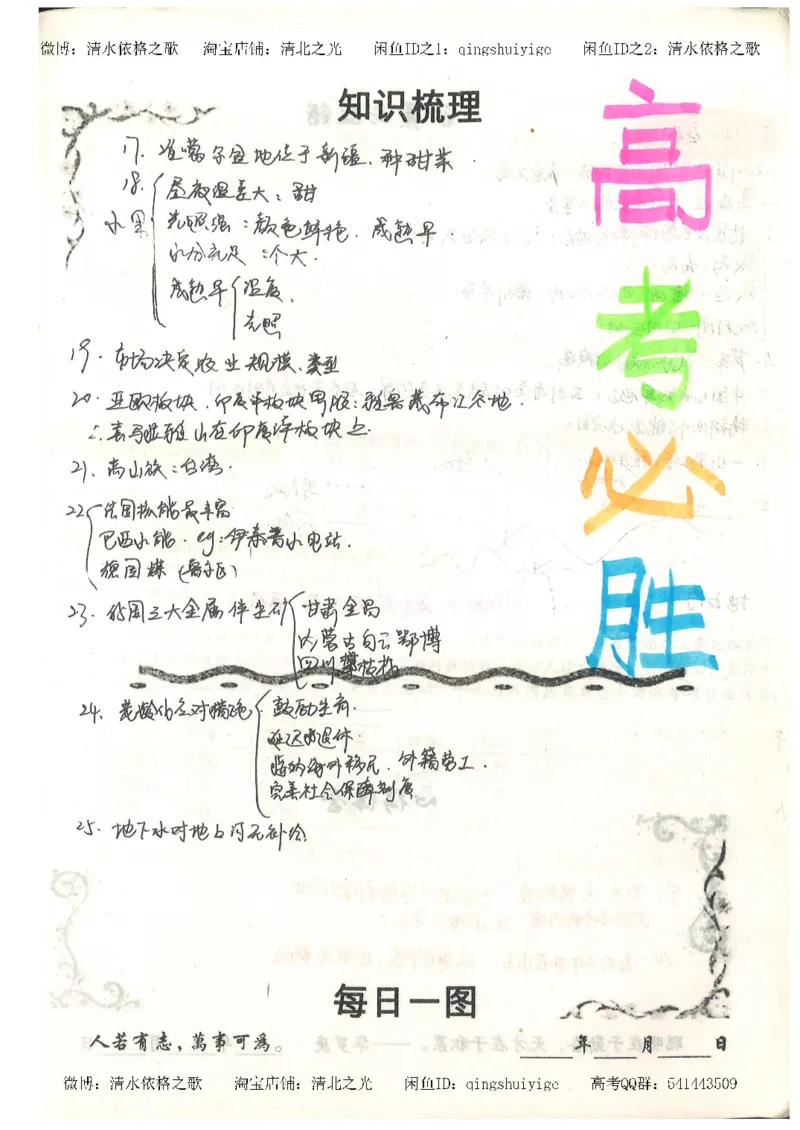 微博：清水依格之歌 淘宝店铺：清北之光 闲鱼ID之1：qingshuiyige 闲鱼ID之2：清水依格之歌
知识梳理
高考必胜
17. 准噶尔盆地位于新疆、种甜菜
18. 水果
昼夜温差大：甜
光照强：颜色鲜艳. 成熟早
水分充足：个大.
成熟早
温度、
光照
19. 市场决定农业规模、类型
20. 亚欧板块、印度洋板块
∴喜马拉雅山在印度洋板块上.
21. 高山族：台湾.
22 法国核能最丰富
巴西水能. eg：伊泰普水电站.
德国煤（鲁尔区）
23. 我国三大金属伴生矿
甘肃金昌
内蒙古白云鄂博
四川攀枝花
24. 老龄化
鼓励生育.
延迟退休.
海外移民、外籍劳工.
完善社会保障制度
25. 地下水对地上河无补给
每日一图
人若有志，萬事可為。
年 月 日
微博：清水依格之歌 淘宝店铺：清北之光 闲鱼ID：qingshuiyige 高考QQ群：541443509